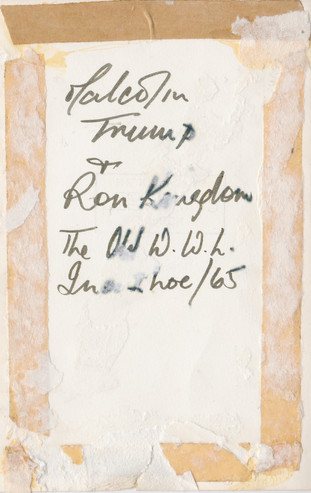 Malcolm
Trump
+
Ron Kingdom
The Old W.W.L.
In a Shoe/65